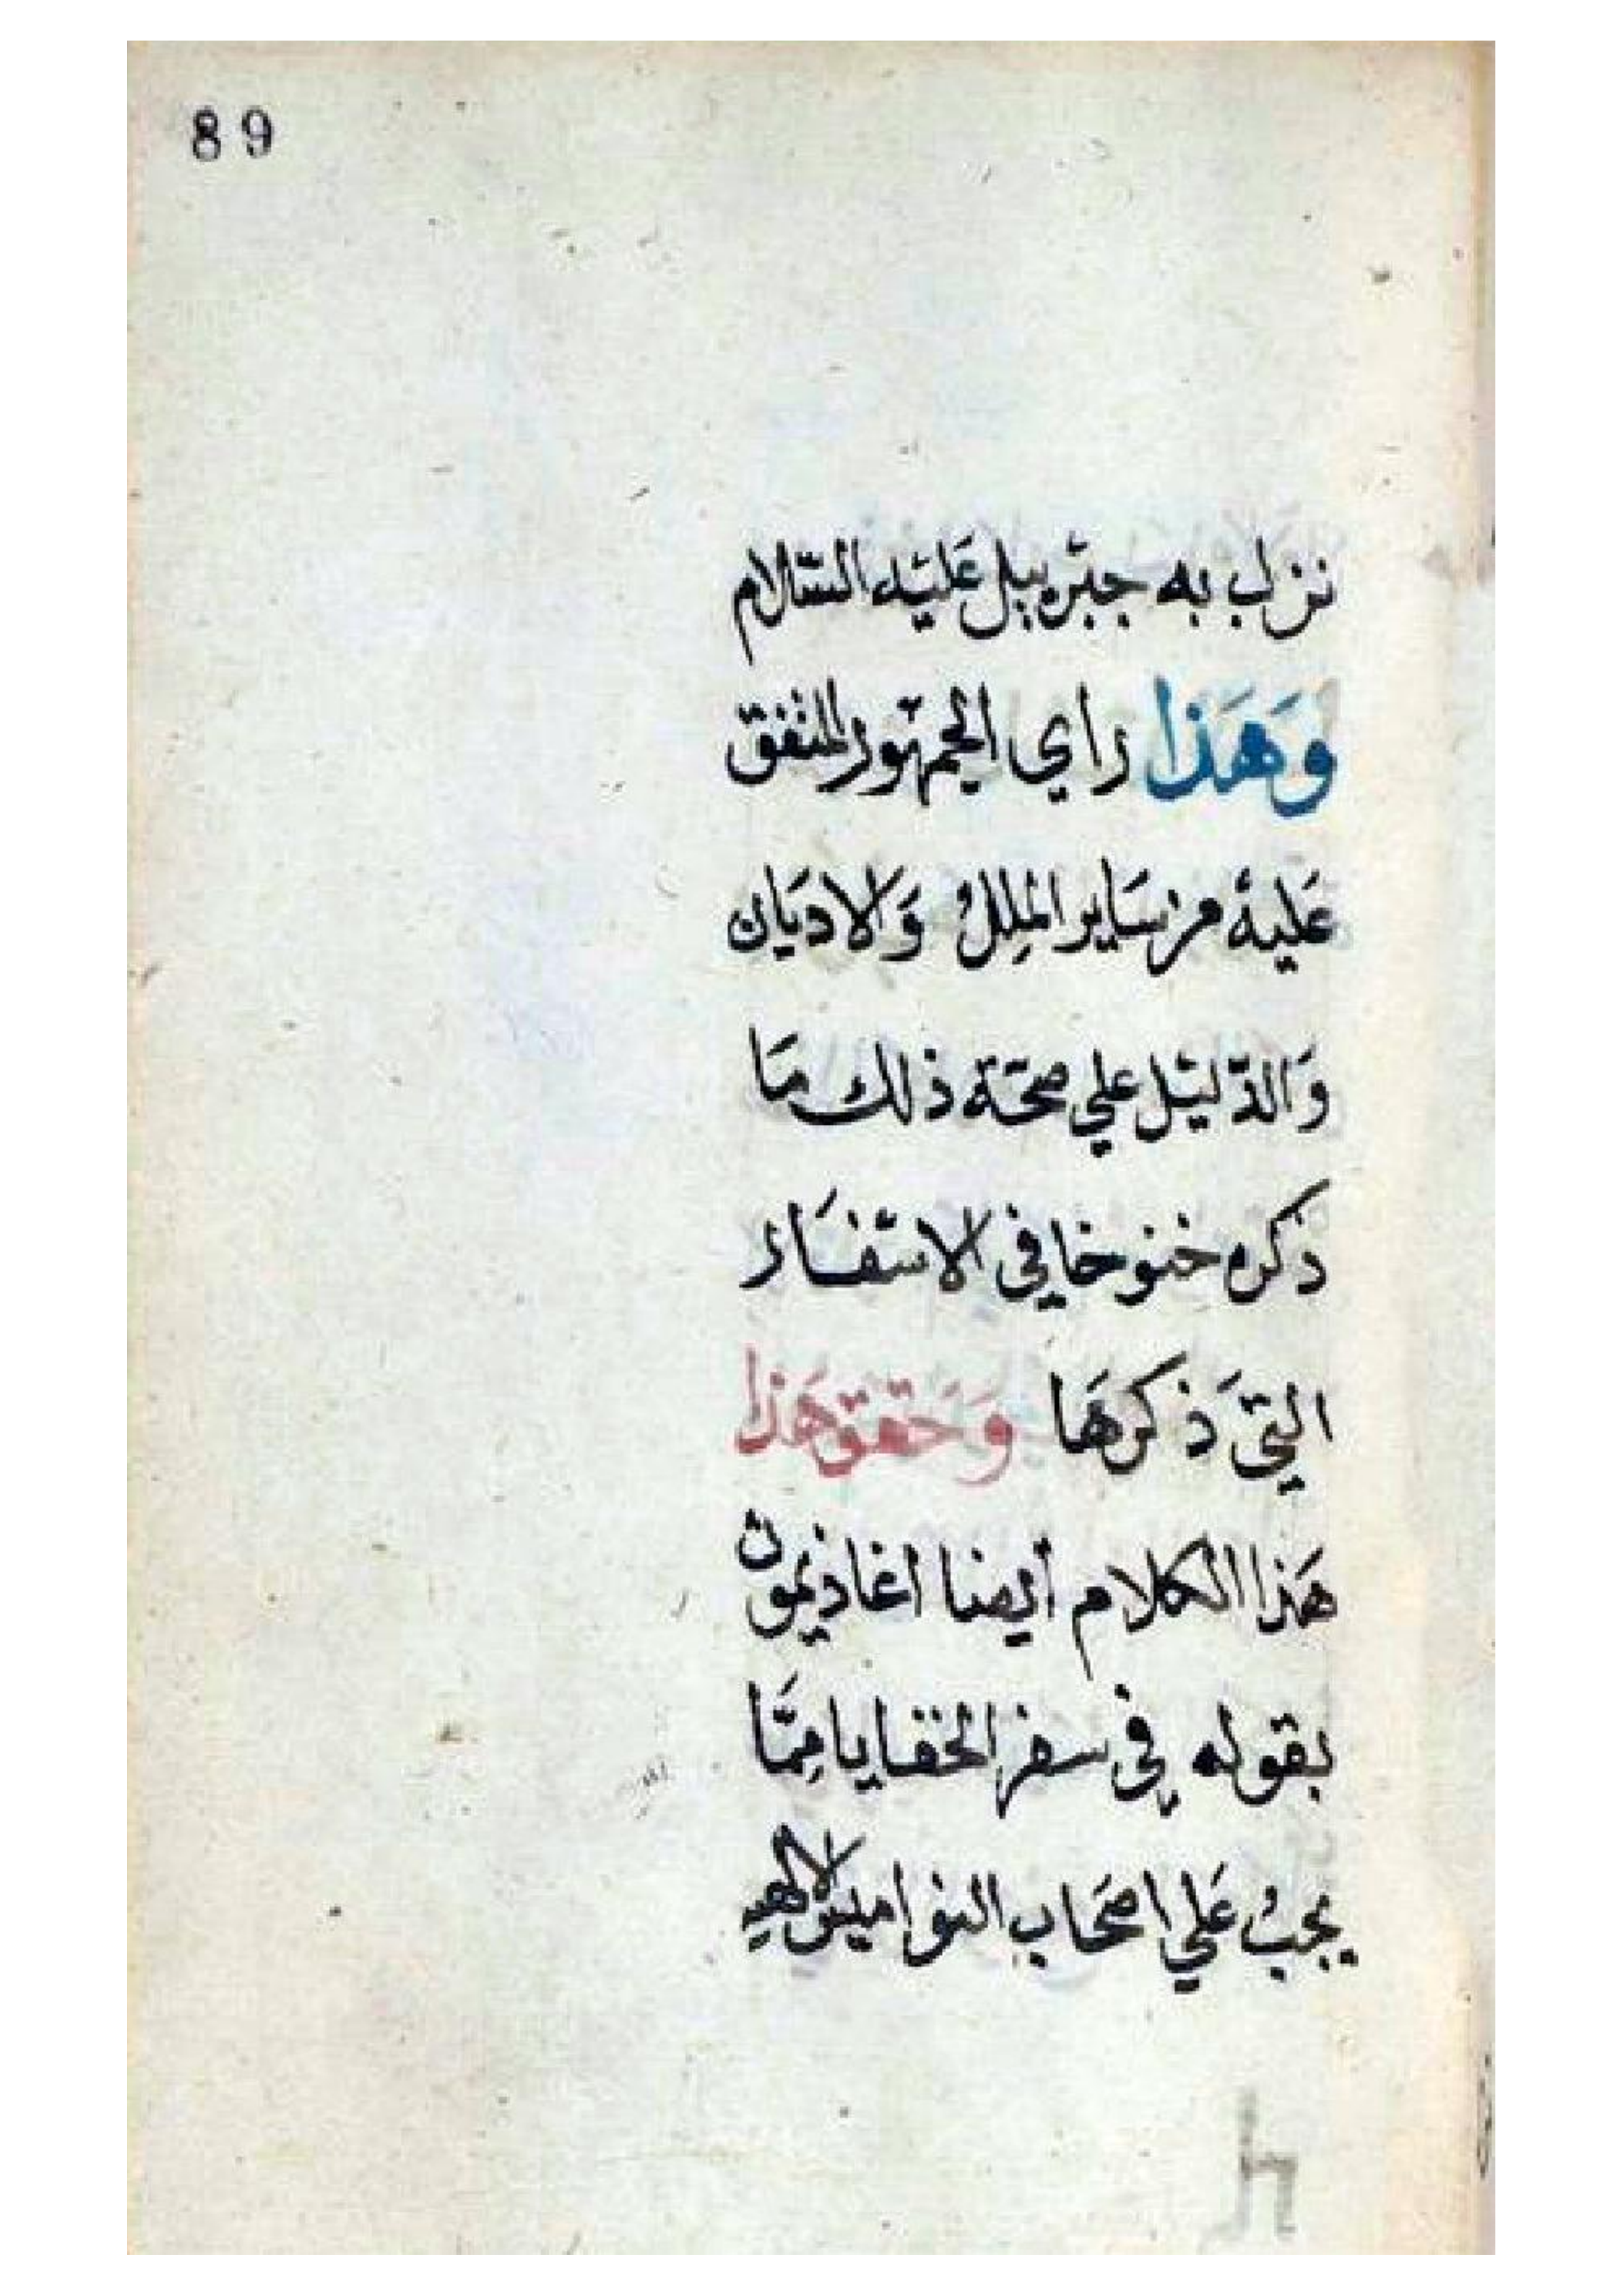 89
نزل به جبرييل عَليْه السّلام
وَهَذا راي الجمهور المتفق
عَليهْ من سَاير المِللْ وَالاديَان
وَالدّليْل علي صحّة ذلك مَا
ذكره خنوخا في الاسْفَار
التي ذكرهَا وَحَقق هَذا
هَذا الكلام أيضا اغاذيمون
بقوله في سفر الخفايا مِمَّا
يجبْ عَلي اصحَاب النواميس الالهيه